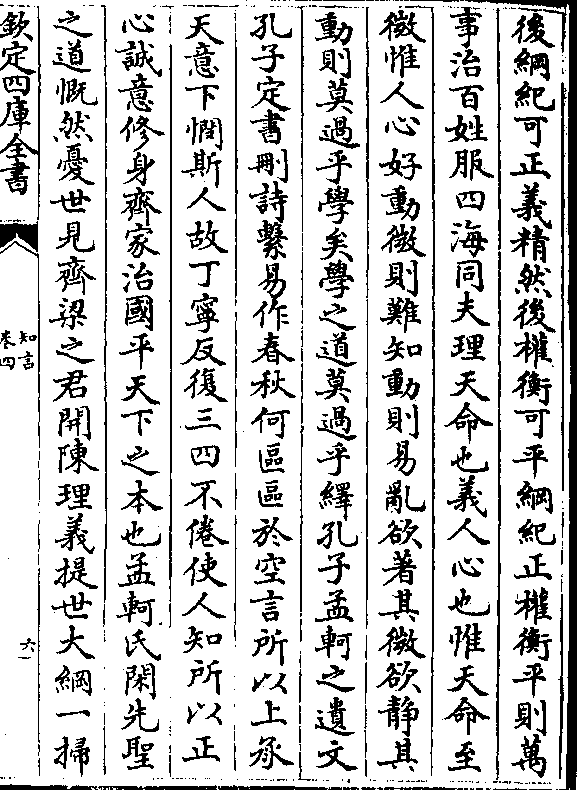 後綱紀可正義精然後權衡可平綱紀正權衡平則萬
事治百姓服四海同夫理天命也義人心也惟天命至
微惟人心好動微則難知動則易亂欲著其微欲靜其
動則莫過乎學矣學之道莫過乎繹孔子孟軻之遺文
孔子定書刪詩繫易作春秋何區區於空言所以上承
天意下憫斯人故丁寧反復三四不倦使人知所以正
心誠意修身齊家治國平天下之本也孟軻氏閑先聖
之道慨然憂世見齊梁之君開陳理義提世大綱一掃
欽定四庫全書
知言
卷四
六